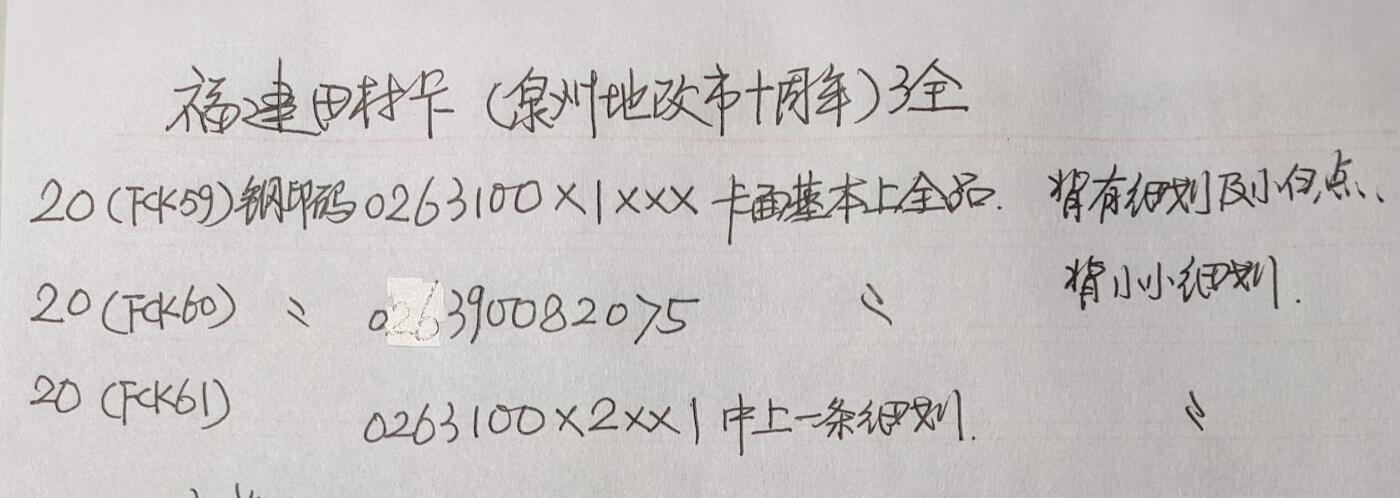 福建田村卡（泉州地改市十周年）3全
20（FCK59）钢印码0263100×1××× 卡面基本上全品. 背有细划及小白点、
20（FCK60）〃 026390082075 〃 背小小细划.
20（FCK61） 0263100×2××1 中上一条细划. 〃